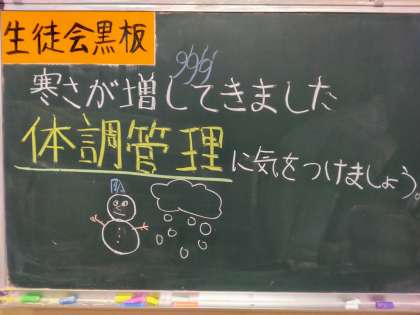 生徒会黒板
寒さが増してきました
体調管理に気をつけましょう。